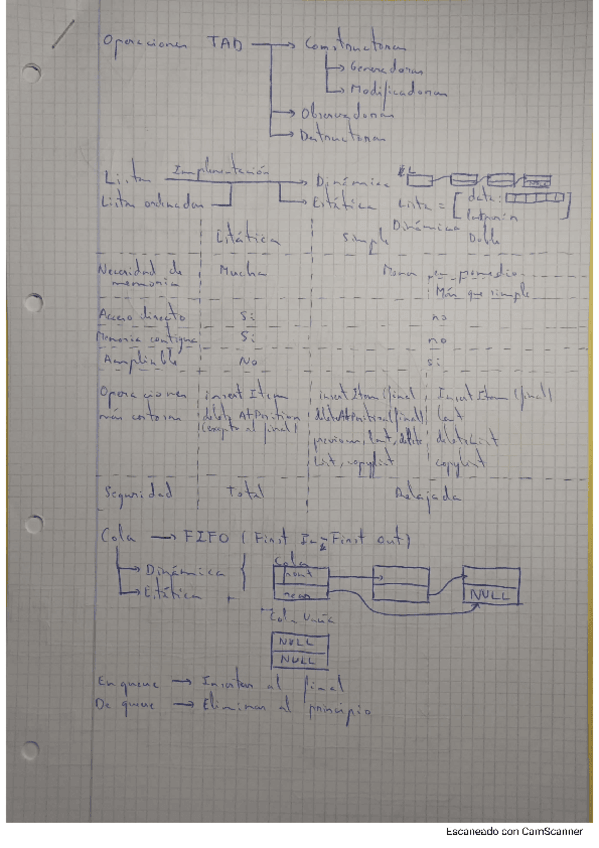 Operaciones TAD → Constructoras
→ Generadoras
→ Modificadoras
→ Observadoras
→ Destructoras
Listas Implementación → Dinámica
Listas ordenadas → Estática
Lista = [ data:
Dinámica
Estática Simple Doble
Necesidad de memoria Mucha Menor en promedio.
Más que simple
Acceso directo Si no
Memoria contigua Si no
Ampliable No si
Operaciones insertItem insertItem (final) InsertItem (final)
más costosas deleteAtPosition deleteAtPosition (final) last
(excepto al final) previous, last, delete deleteList
list, copylist copylist
Seguridad Total Relajada
Cola → FIFO (First In First out)
→ Dinámica
→ Estática
Cola
front
rear
NULL
Cola Vacía
NULL
NULL
En queue → Insertar al final
De queue → Eliminar al principio
Escaneado con CamScanner